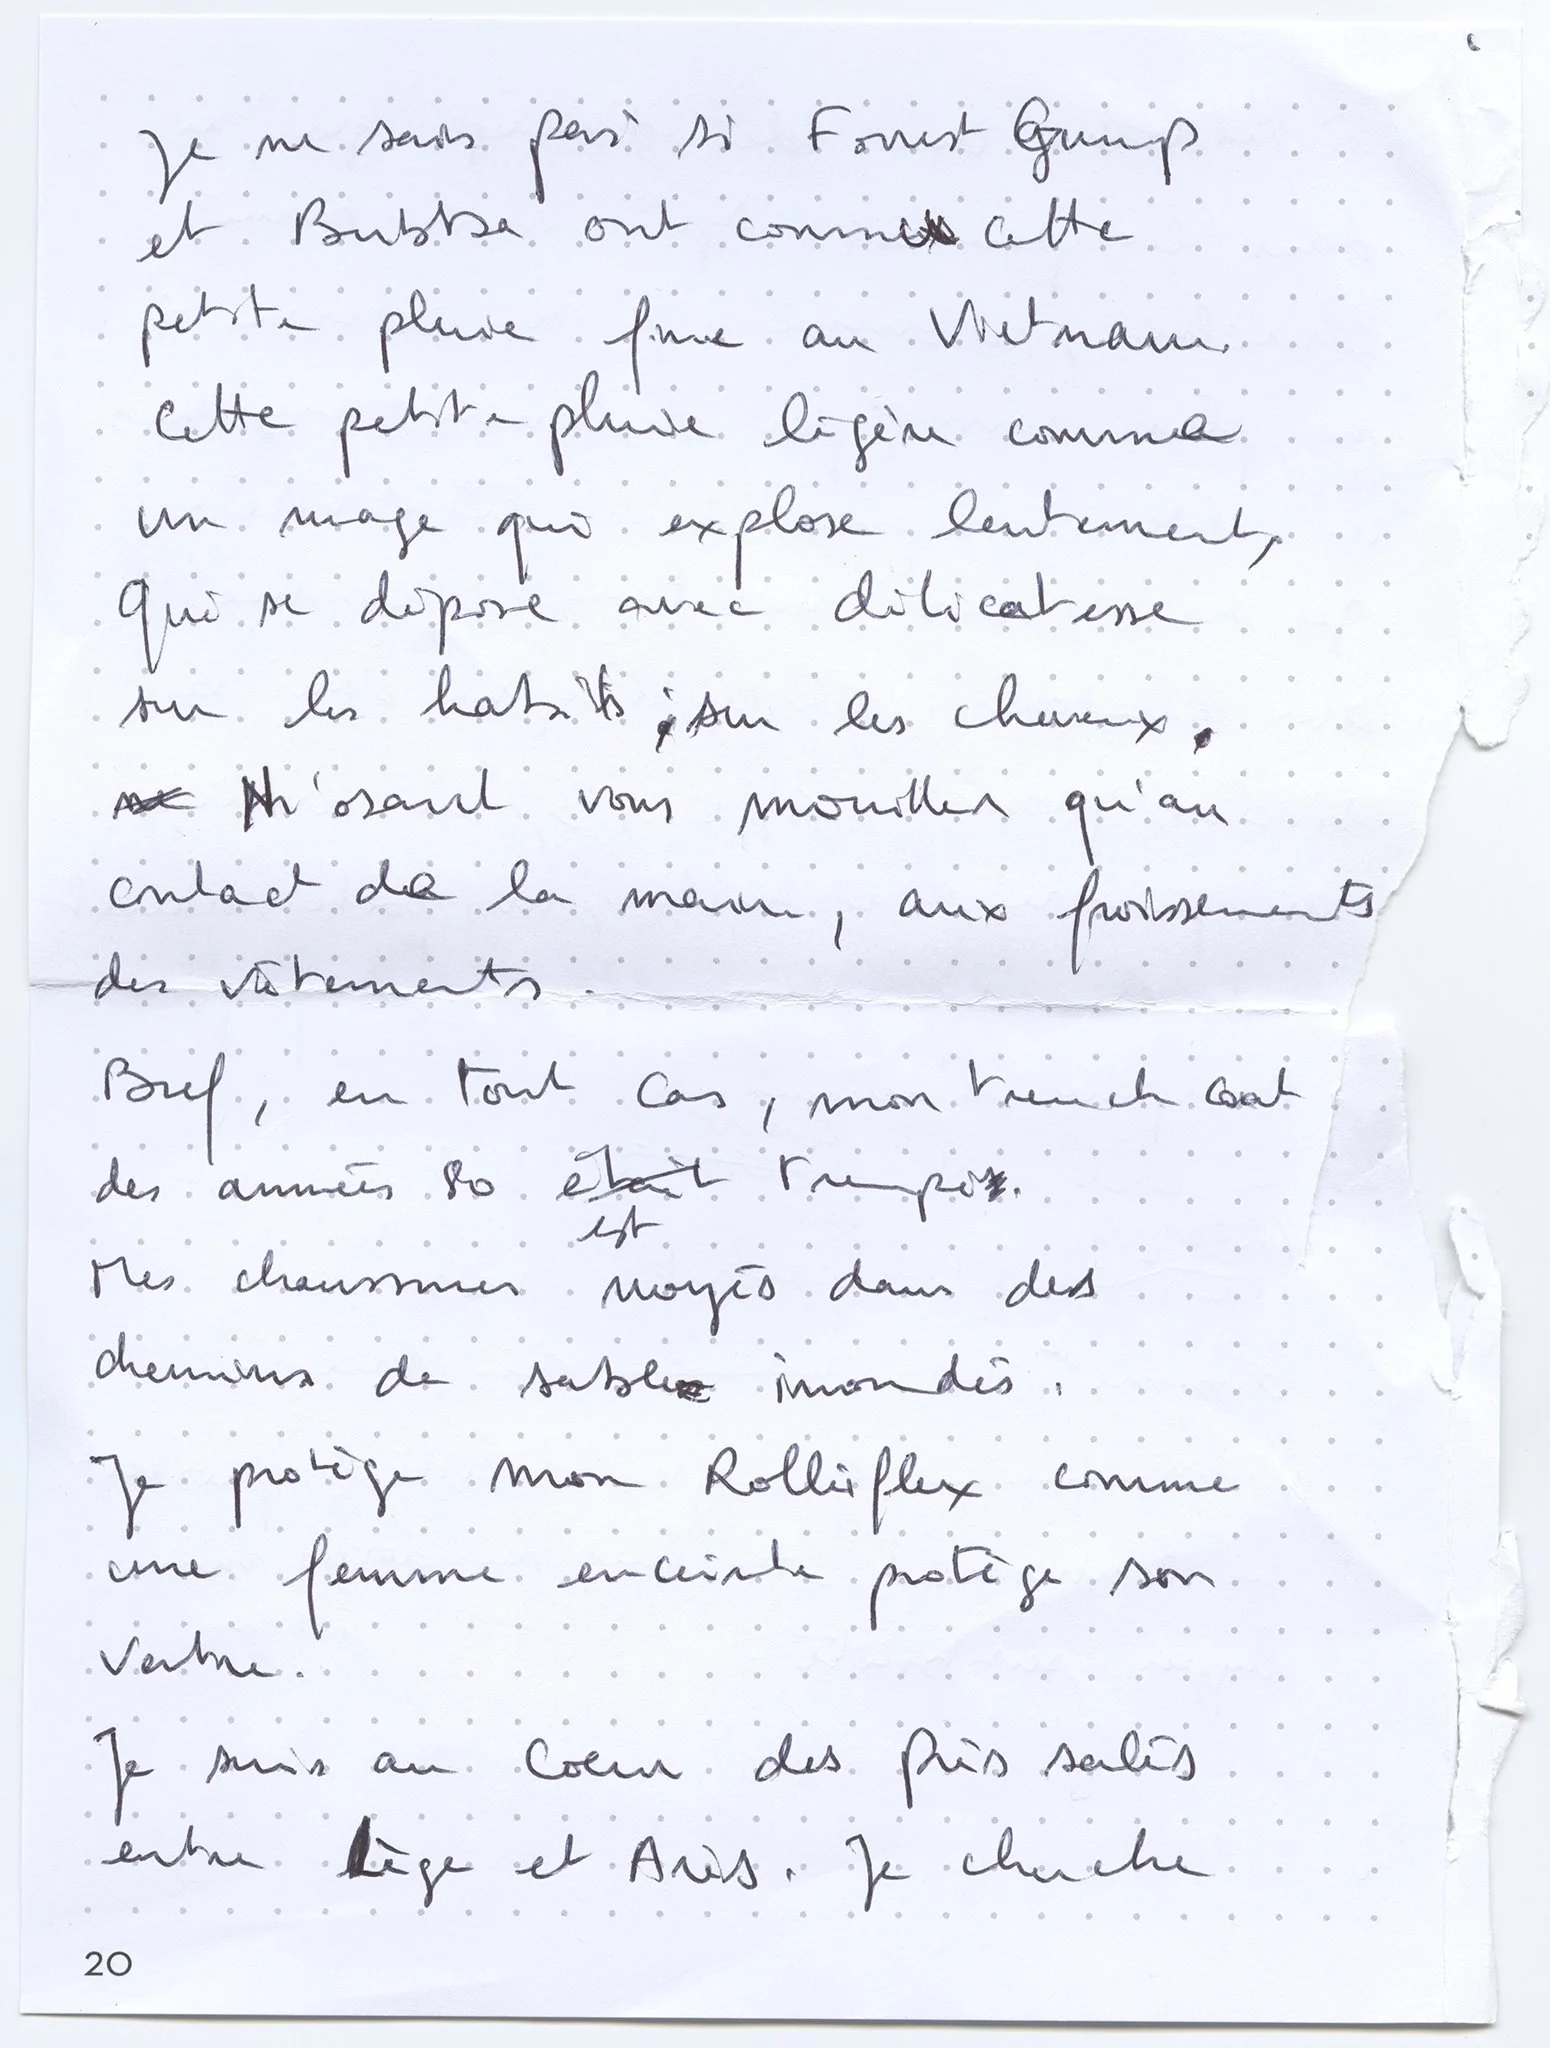 Je ne sais pas si Forrest Gump
et Bubba ont connu cette
petite pluie fine au Vietnam.
Cette petite pluie légère comme
un nuage qui explose lentement,
Qui se dépose avec délicatesse
sur les habits, sur les cheveux.
N'osant vous mouiller qu'au
contact de la main, aux froissements
des vêtements.
Bref, en tout cas, mon trench coat
des années 80 était trempé.
est
Mes chaussures noyés dans des
chemins de sable inondés.
Je protège mon Rolleiflex comme
une femme enceinte protège son
ventre.
Je suis au coeur des prés salés
entre Lège et Arès. Je cherche
20